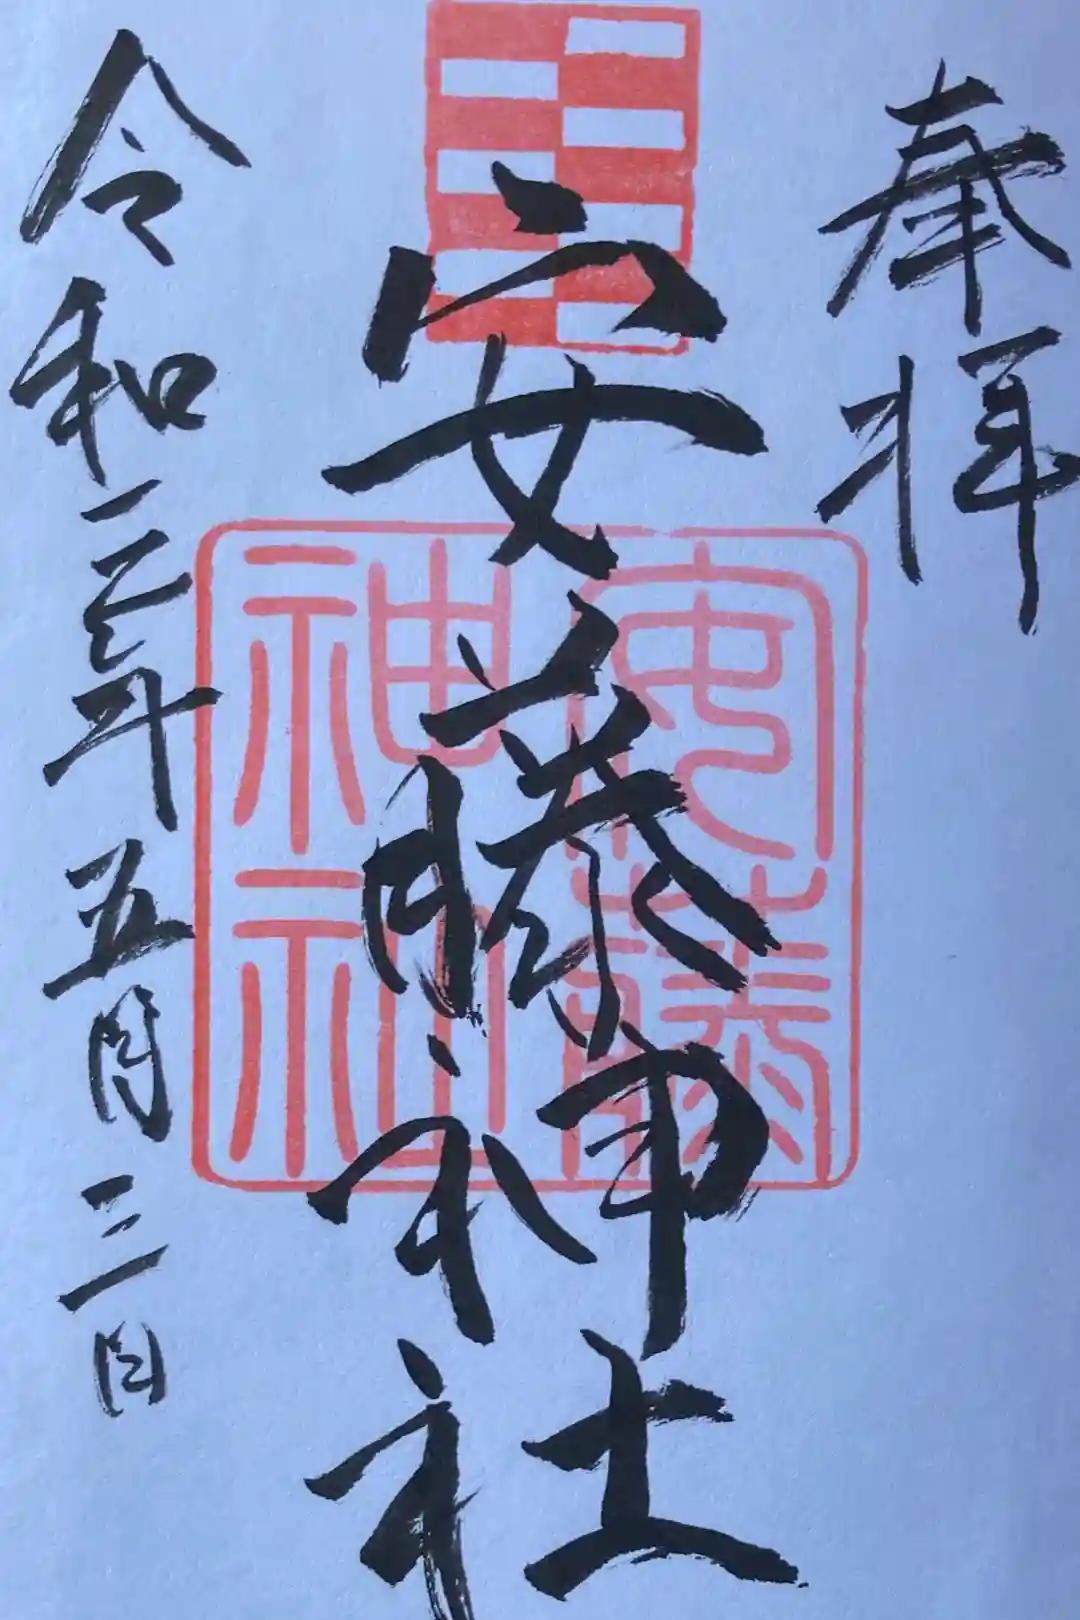 奉拝
安藤神社
令和三年五月三日
安藤
神社